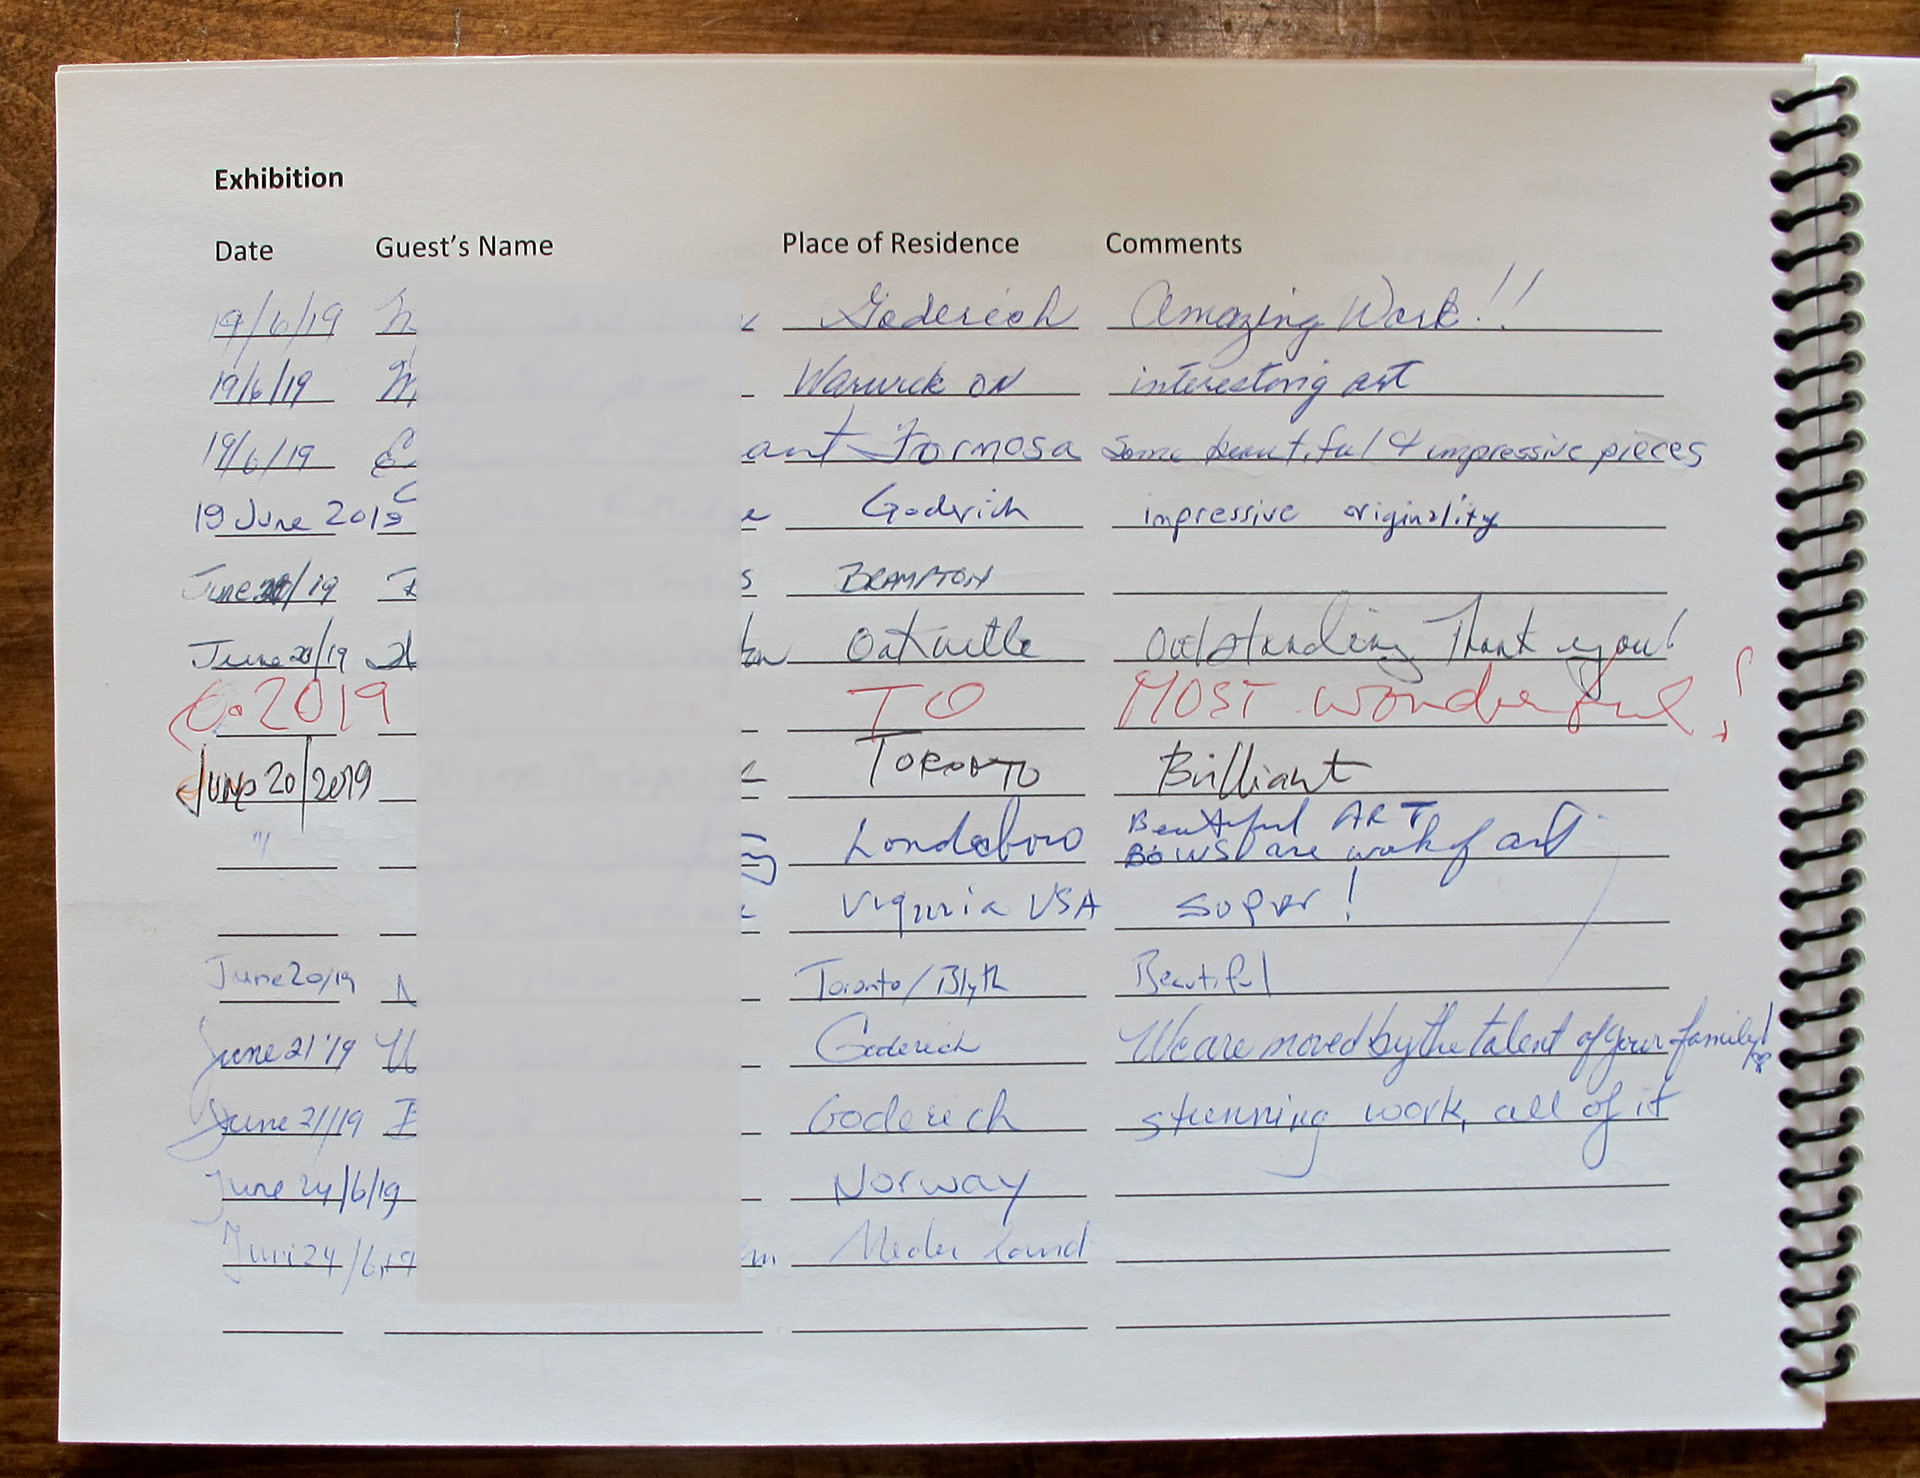 Exhibition
Date Guest's Name Place of Residence Comments
19/6/19 Goderich Amazing Work!!
19/6/19 Warwick ON interesting art
19/6/19 Formosa Some beautiful & impressive pieces
19 June 2019 Goderich impressive originality
June /19 BRAMPTON
June 20/19 Oakville Outstanding Thank you!
2019 TO MOST wonderful!
June 20/2019 TORONTO Brilliant
" Londesboro Beautiful ART
BOWSL are work of art
Virginia USA super!
June 20/19 Toronto/Blyth Beautiful
June 21'19 Goderich We are moved by the talent of your family!
June 21/19 Goderich stunning work, all of it
June 24/6/19 Norway
Juni 24/6,19 Nederland